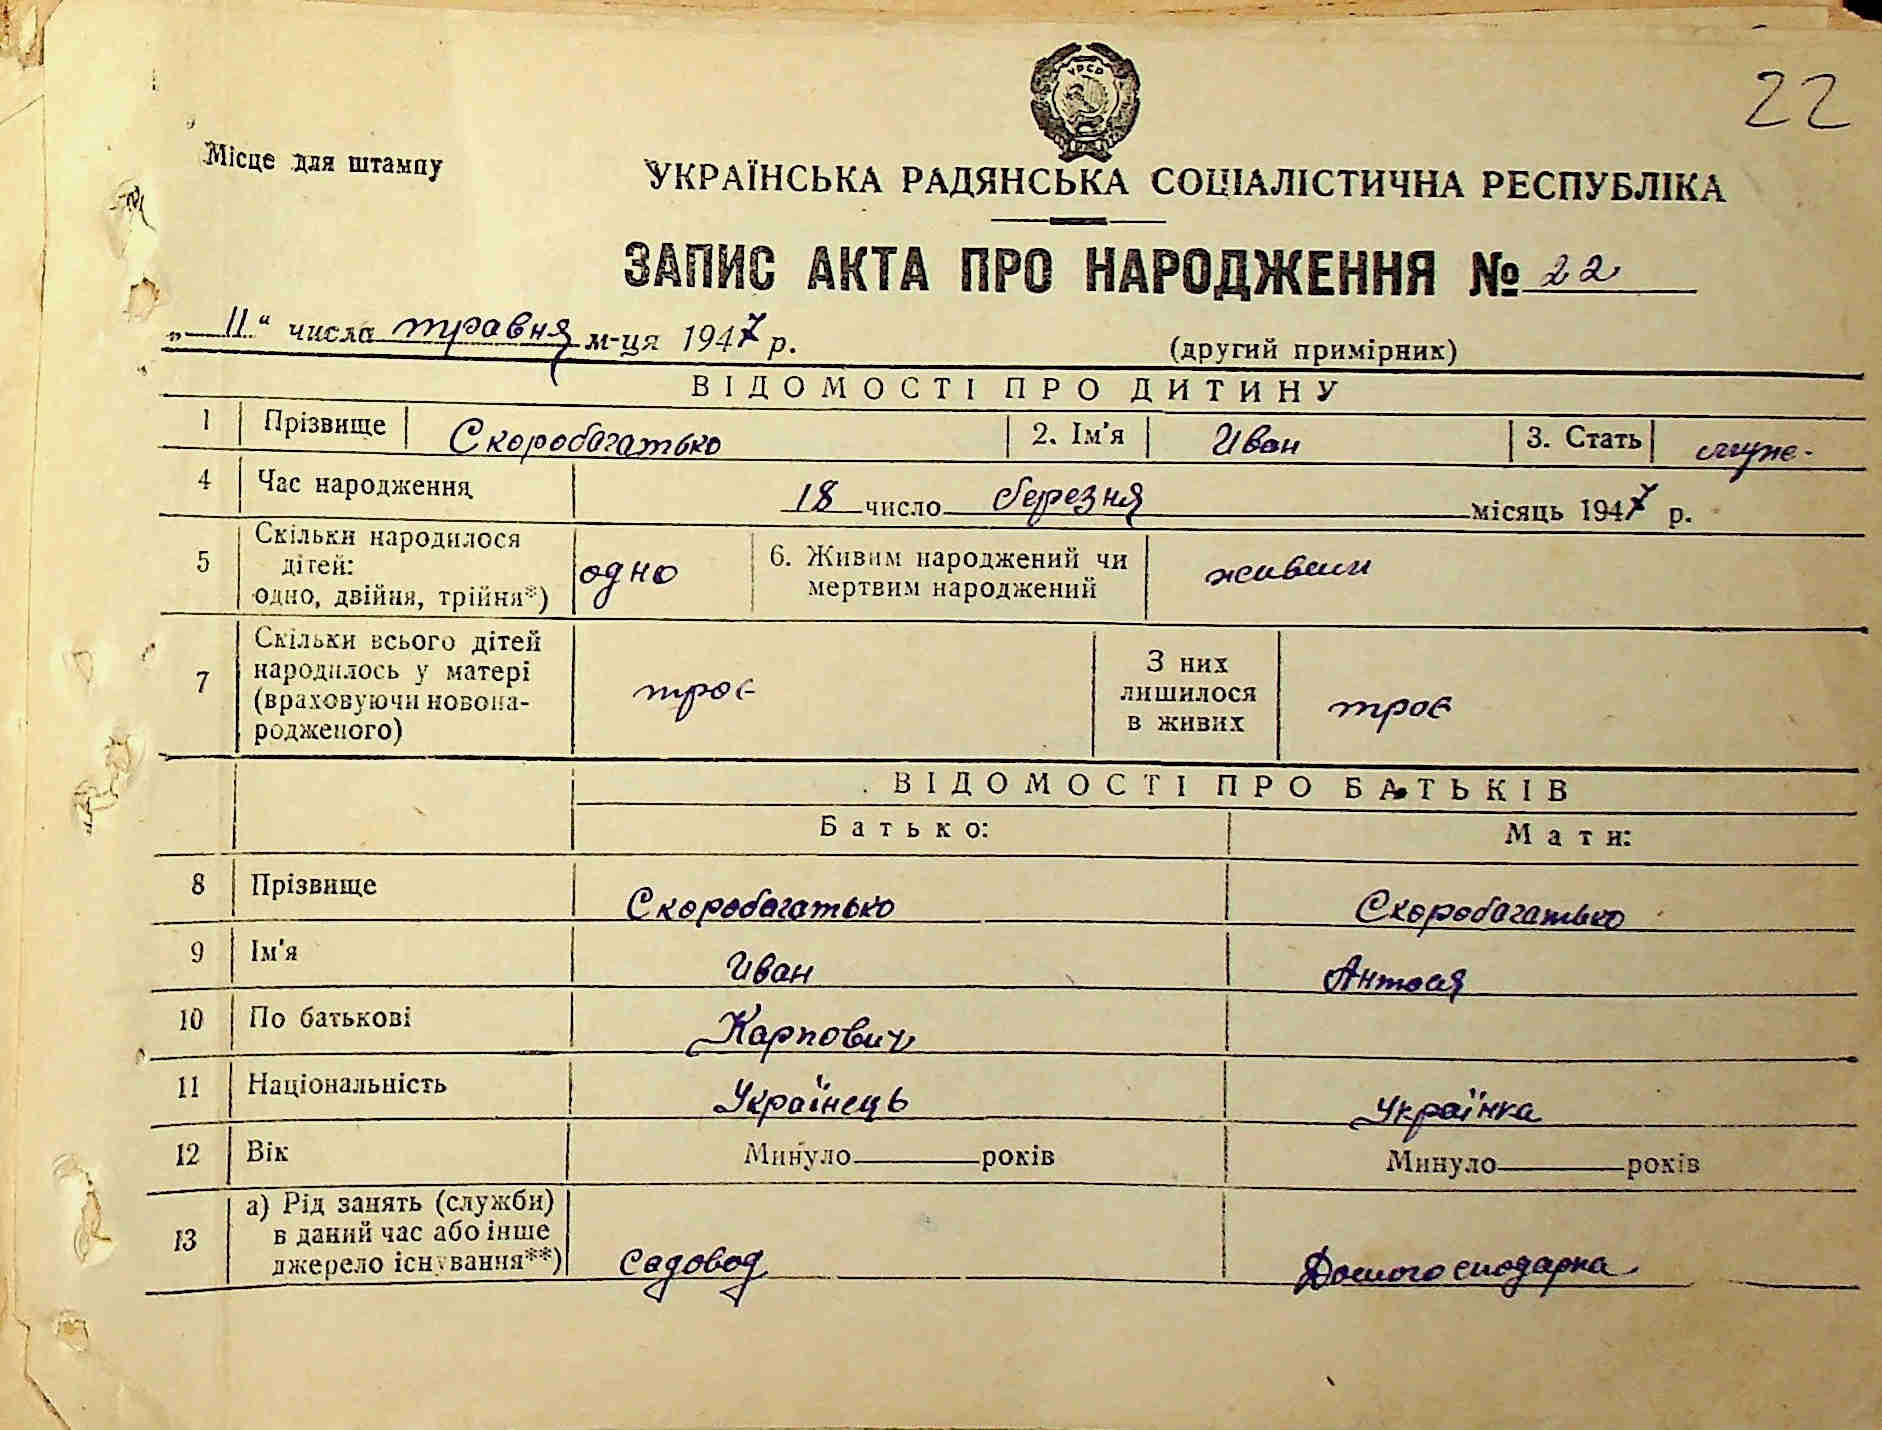 22
УРСР
Місце для штампу
УКРАЇНСЬКА РАДЯНСЬКА СОЦІАЛІСТИЧНА РЕСПУБЛІКА
ЗАПИС АКТА ПРО НАРОДЖЕННЯ № 22
„ 11 “ числа травня м-ця 1947 р.
(другий примірник)
ВІДОМОСТІ ПРО ДИТИНУ
1 Прізвище Скоробагатько 2. Ім'я Иван 3. Стать муж-
4 Час народження 18 число березня місяць 1947 р.
5 Скільки народилося дітей: одно, двійня, трійня*) одно 6. Живим народжений чи мертвим народжений живим
7 Скільки всього дітей народилось у матері (враховуючи новонародженого) троє З них лишилося в живих троє
ВІДОМОСТІ ПРО БАТЬКІВ
Батько: Мати:
8 Прізвище Скоробагатько Скоробагатько
9 Ім'я Иван Антося
10 По батькові Карпович
11 Національність Українець Українка
12 Вік Минуло років Минуло років
13 а) Рід занять (служби) в даний час або інше джерело існування**) садовод Домогосподарка